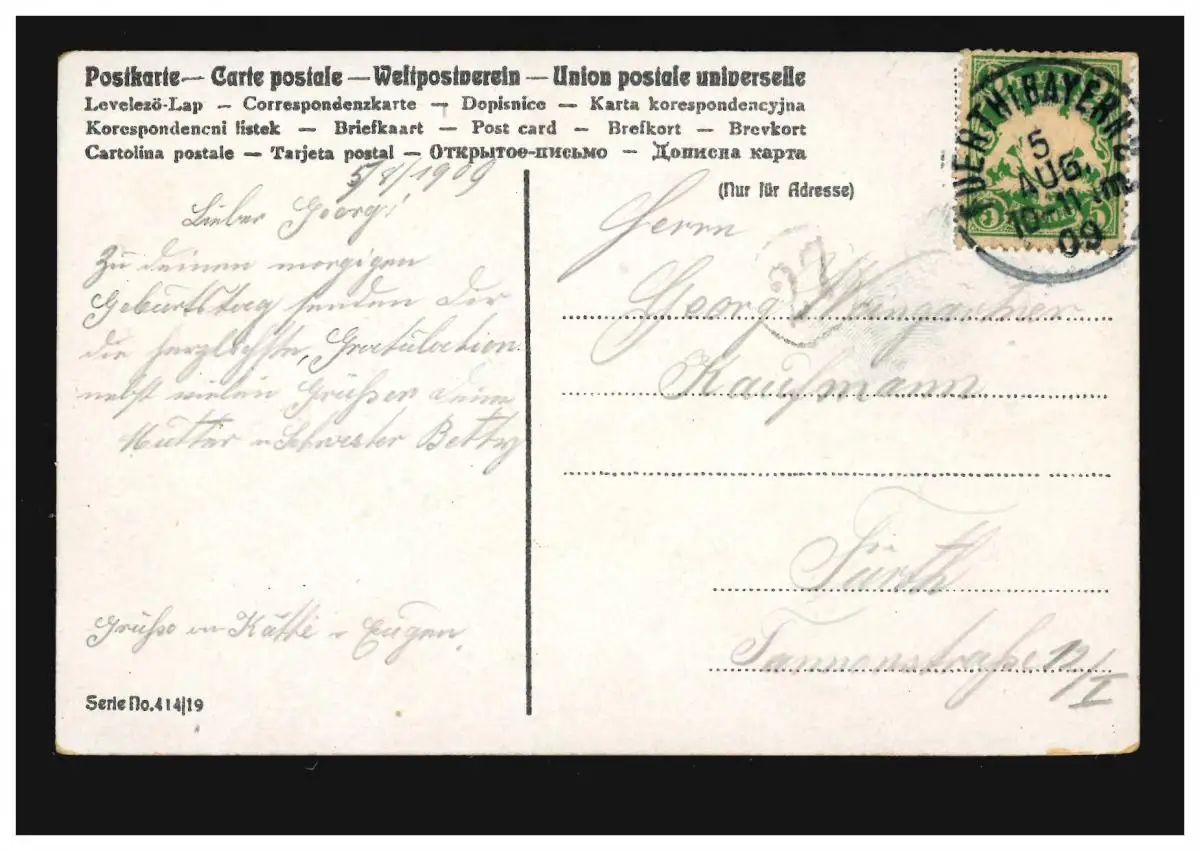 Postkarte — Carte postale — Weltpostverein — Union postale universelle
Levelező-Lap — Correspondenzkarte — Dopisnice — Karta korespondencyjna
Korespondencni listek — Briefkaart — Post card — Brefkort — Brevkort
Cartolina postale — Tarjeta postal — Открытое-письмо — Дописна карта
5/8/1909
Lieber Georg!
Zu deinem morgigen
Geburtstag senden Dir
die herzlichste Gratulation
nebst vielen Grüßen Deine
Mutter u Schwester Betty
Grüße von Käthi u Eugen.
Serie No. 414/19
(Nur für Adresse)
FUERTH(BAYERN)2
5
AUG.
10-11
09
5 5
27
Herrn
Georg Weingärtner
Kaufmann
Fürth
Tannenstraße 12/I